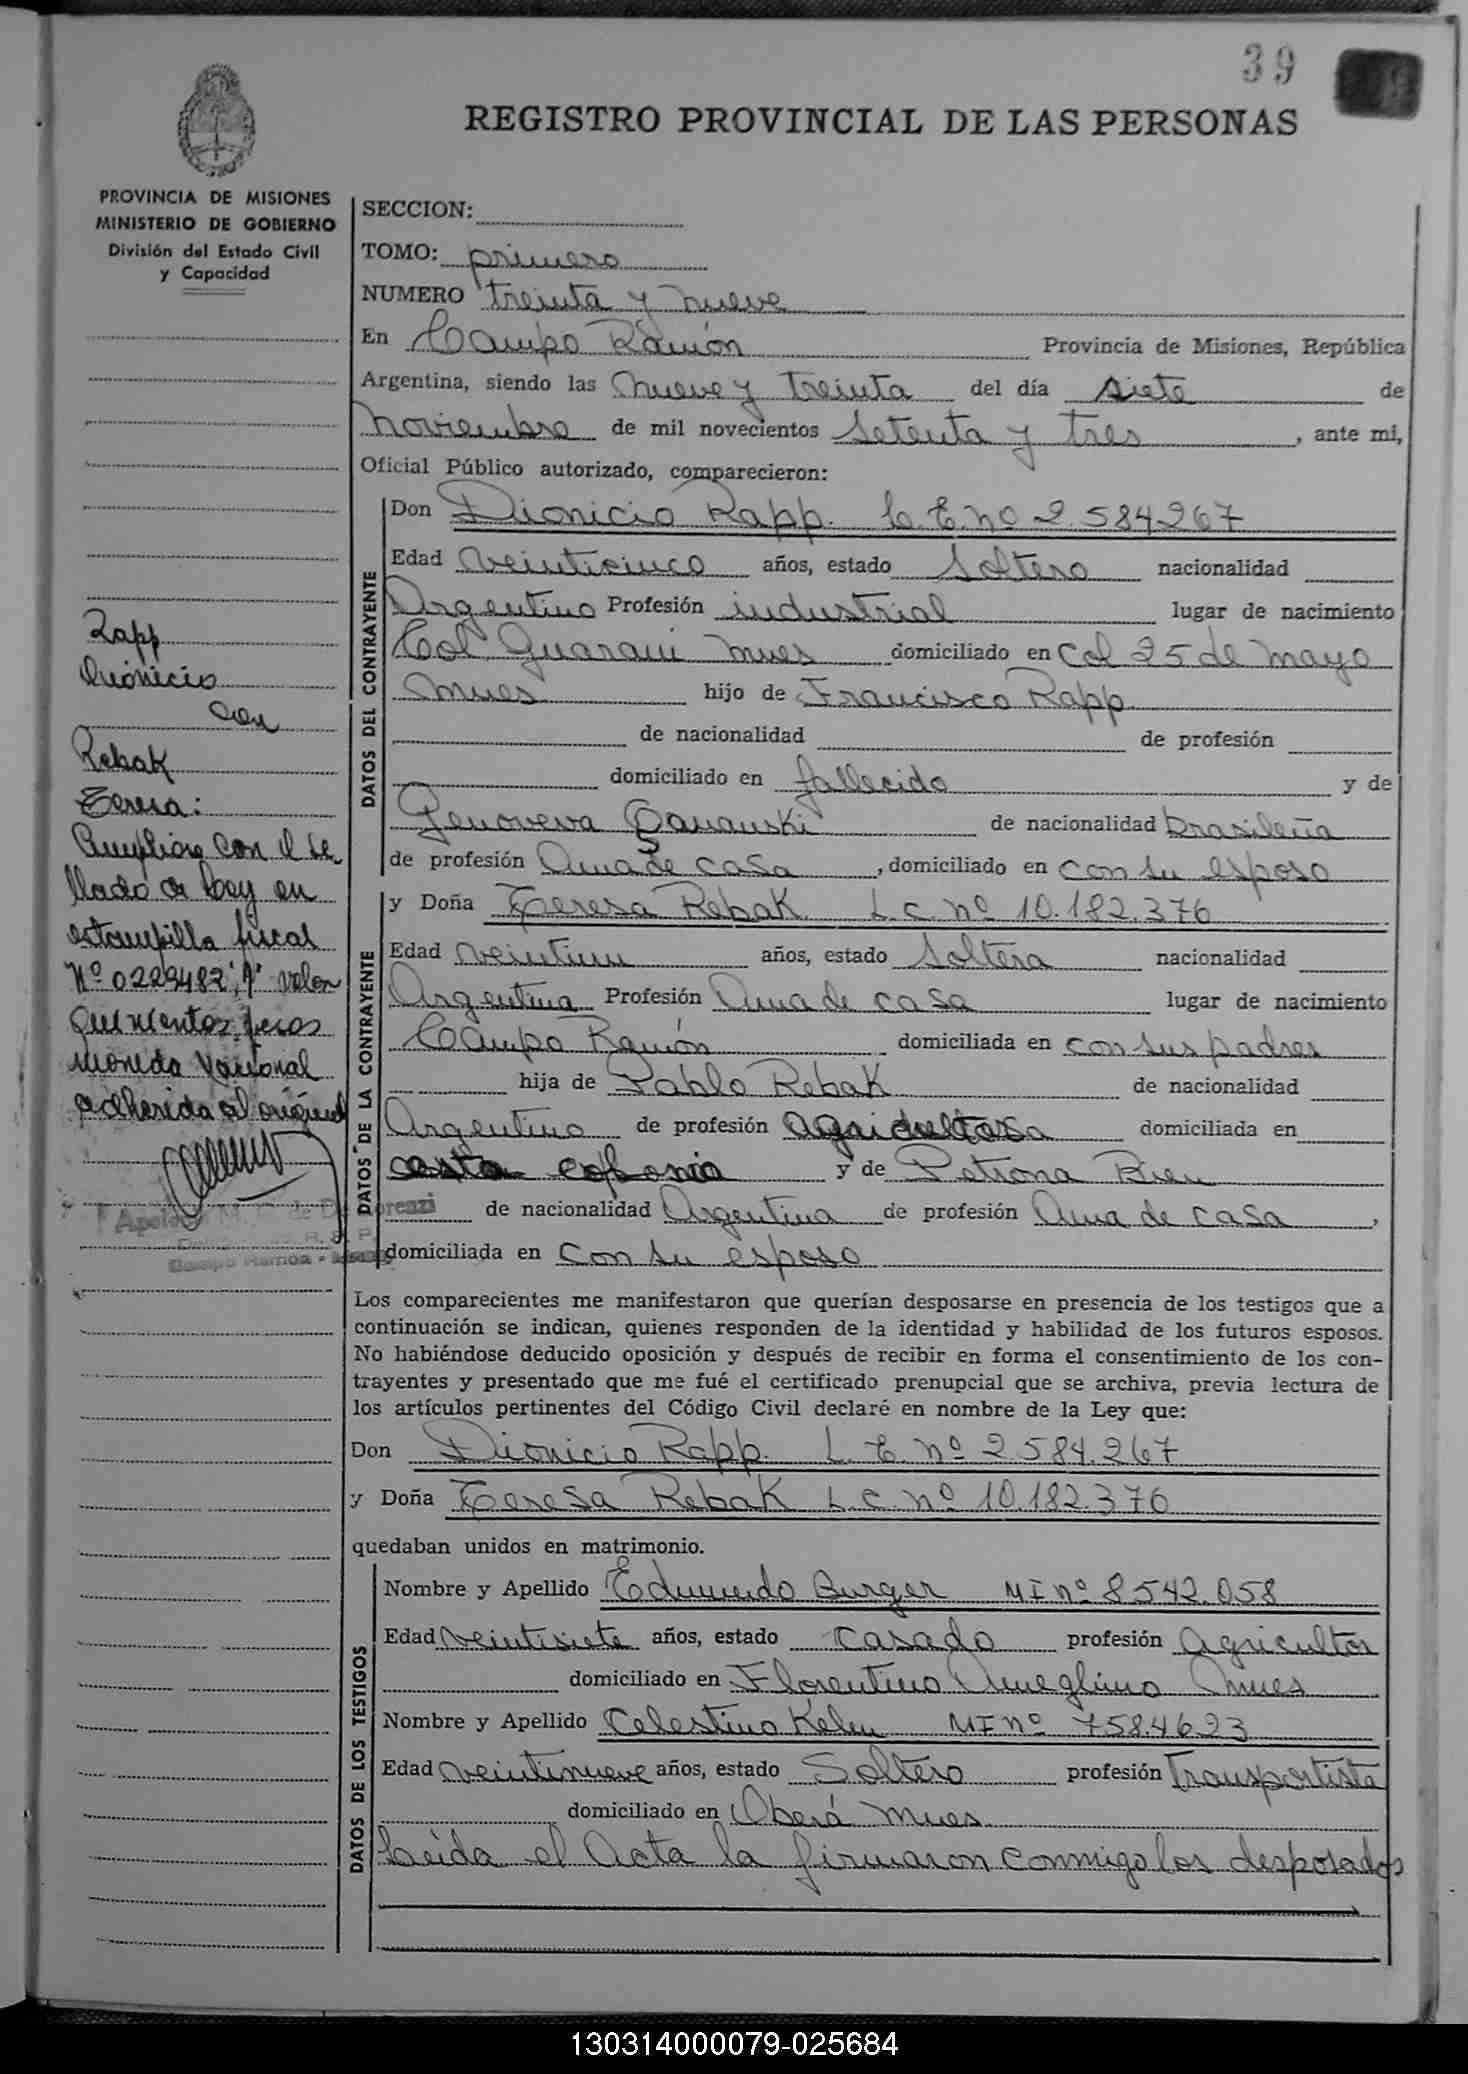 39
REGISTRO PROVINCIAL DE LAS PERSONAS
PROVINCIA DE MISIONES
MINISTERIO DE GOBIERNO
División del Estado Civil
y Capacidad
Rapp
Dionicio
con
Rebak
Teresa:
con el se
llado de Ley en
estampilla fiscal
Nº 0229482, valor
Quinientos pesos
moneda Nacional
adherida al original
SECCION:
TOMO: primero
NUMERO treinta y nueve
En Campo Ramón Provincia de Misiones, República
Argentina, siendo las nueve y treinta del día siete de
noviembre de mil novecientos setenta y tres, ante mi,
Oficial Público autorizado, comparecieron:
DATOS DEL CONTRAYENTE
Don Dionicio Rapp. L.E. nº 2.584267
Edad veinticinco años, estado Soltero nacionalidad
Argentino Profesión industrial lugar de nacimiento
Col Guaraní Mnes domiciliado en Col 25 de mayo
Mnes hijo de Francisco Rapp
de nacionalidad de profesión
domiciliado en fallecido y de
Genoveva de nacionalidad brasileña
de profesión Ama de casa, domiciliado en con su esposo
DATOS DE LA CONTRAYENTE
y Doña Teresa Rebak L.C. nº 10.182.376
Edad veintiun años, estado Soltera nacionalidad
Argentina Profesión Ama de casa lugar de nacimiento
Campo Ramón domiciliada en con sus padres
hija de Pablo Rebak de nacionalidad
Argentino de profesión domiciliada en
esta colonia y de Petrona
de nacionalidad Argentina de profesión Ama de casa,
domiciliada en con su esposo
Los comparecientes me manifestaron que querían desposarse en presencia de los testigos que a
continuación se indican, quienes responden de la identidad y habilidad de los futuros esposos.
No habiéndose deducido oposición y después de recibir en forma el consentimiento de los con-
trayentes y presentado que me fué el certificado prenupcial que se archiva, previa lectura de
los artículos pertinentes del Código Civil declaré en nombre de la Ley que:
Don Dionicio Rapp. L.E. nº 2.584.267
y Doña Teresa Rebak L.C. nº 10.182.376
quedaban unidos en matrimonio.
DATOS DE LOS TESTIGOS
Nombre y Apellido Edmundo Burger MI nº 8542.058
Edad veintisiete años, estado casado profesión agricultor
domiciliado en Florentino Ameghino Mnes
Nombre y Apellido Celestino MI nº 7584623
Edad veintinueve años, estado Soltero profesión Transportista
domiciliado en Oberá Mnes
Leida el Acta la firmaron conmigo los desposados
130314000079-025684